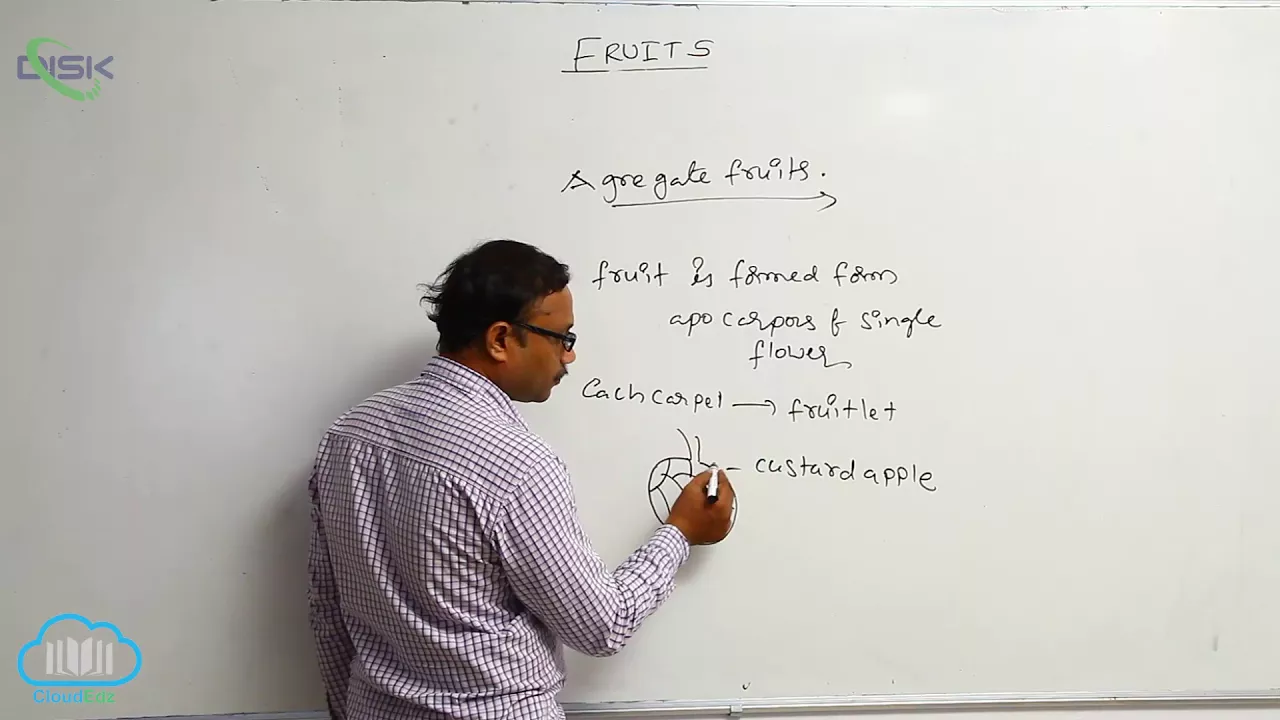 DISK
FRUITS
Agregate fruits.
fruit is formed form
apocarpous of single
flower
Each carpel → fruitlet
custard apple
CloudEdz